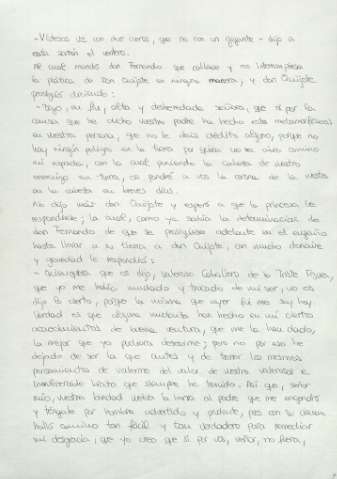 -Vístesos vos con dos cueros, que no con un gigante - dijo a
esta sazón el ventero.
Al cual mandó don Fernando que callase y no interrumpiese
la plática de Don Quijote en ninguna manera; y don Quijote
prosiguió diciendo:
- Digo, en fin, alta y desheredada señora, que si por la
causa que he dicho vuestro padre ha hecho este metamorfóseos
en vuestra persona, que no le deis crédito alguno, porque no
hay ningún peligro en la tierra por quien no se abra camino
mi espada, con la cual poniendo la cabeza de vuestro
enemigo en tierra, os pondré a vos la corona de la vuestra
en la cabeza en breves días.
No dijo más don Quijote y esperó a que la princesa le
respondiese; la cual, como ya sabía la determinación de
don Fernando de que se prosiguiese adelante en el engaño
hasta llevar a su tierra a don Quijote, con mucho donaire
y gravedad le respondió:
- Quienquiera que os dijo, valeroso Caballero de la Triste Figura,
que yo me había mudado y trocado de mi ser, no os
dijo lo cierto, porque la misma que ayer fui me soy hoy.
Verdad es que alguna mudanza han hecho en mí ciertos
acaecimientos de buena ventura, que me la han dado,
la mejor que yo pudiera desearme; pero no por eso he
dejado de ser la que antes y de tener los mesmos
pensamientos de valerme del valor de vuestro valeroso e
invulnerable brazo que siempre he tenido. Así que, señor
mío, vuestra bondad vuelva la honra al padre que me engendró
y téngale por hombre advertido y prudente, pues con su ciencia
halló camino tan fácil y tan verdadero para remediar
mi desgracia; que yo creo que si por vos, señor, no fuera,